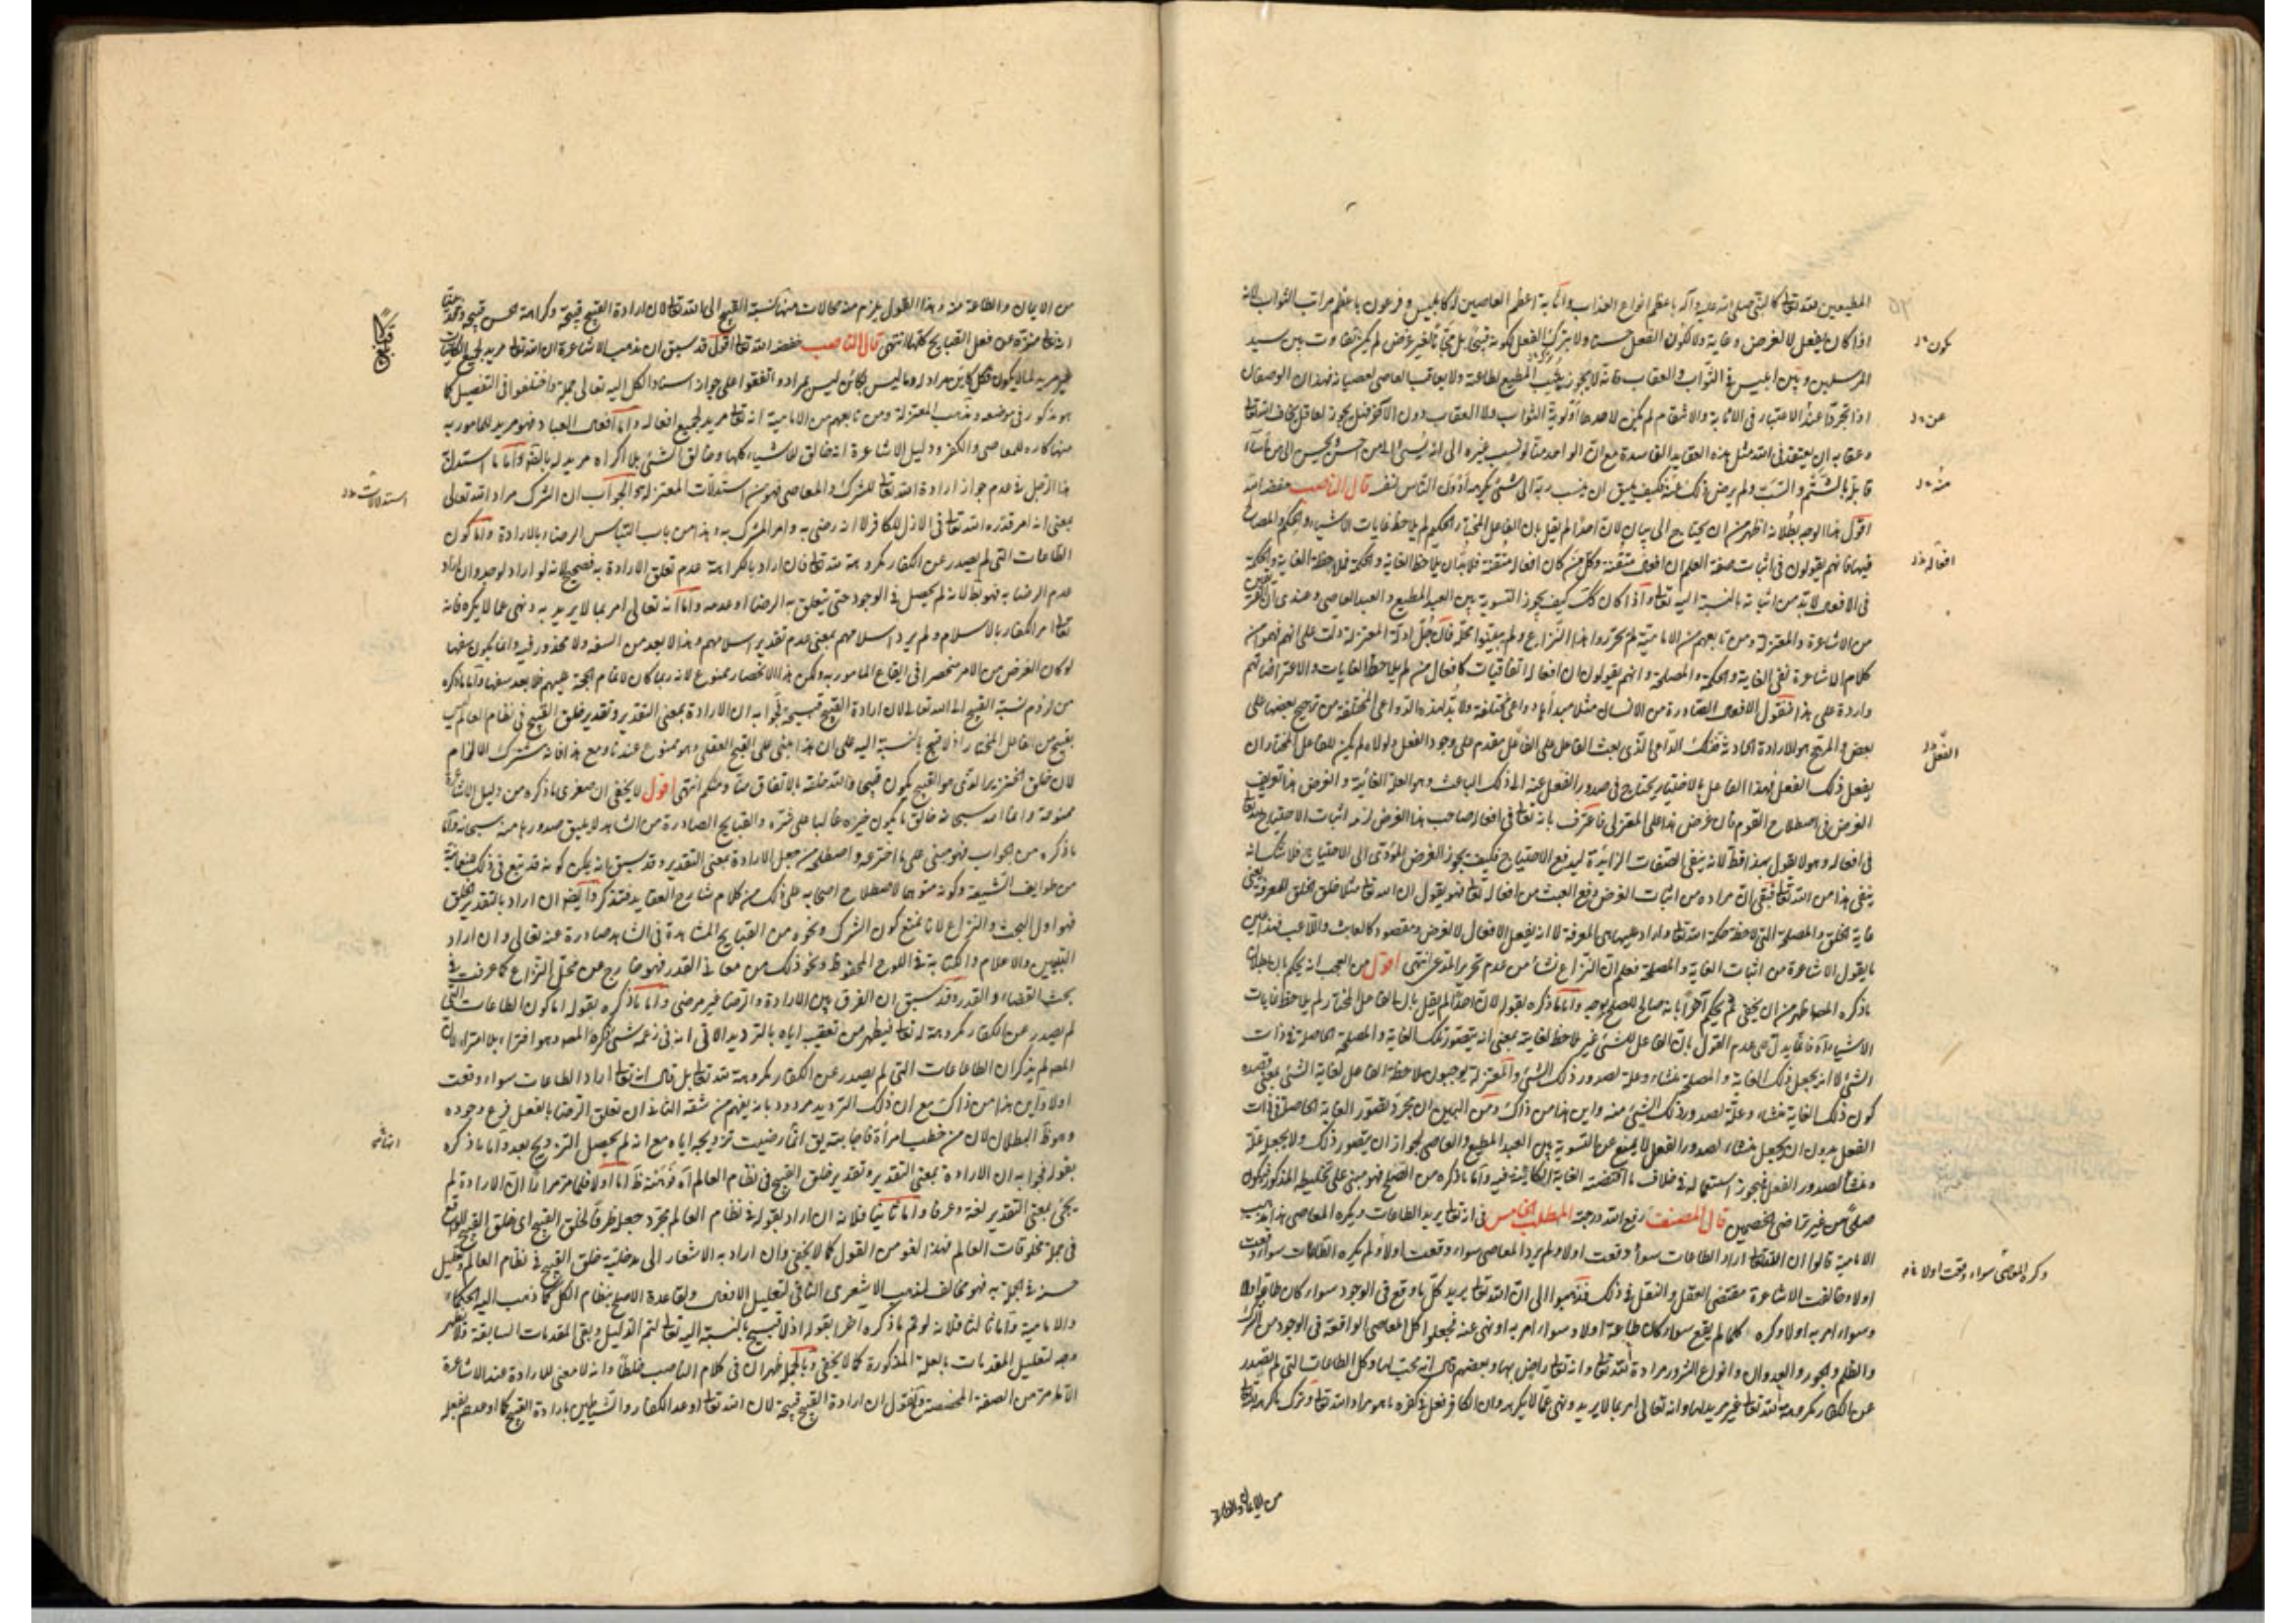 المطيعين لله تعالى كالنبي صلى الله عليه وآله بأعظم انواع العذاب واثابة اعظم العاصين له كابليس وفرعون باعظم مراتب الثواب لانه
اذا كان يفعل لا لغرض وغاية ولا لكون الفعل حسنا ولا يترك الفعل لكونه قبيحا بل مجانا لغير غرض لم يكن تفاوت بين سيد
المرسلين وبين ابليس في الثواب والعقاب فانه لا يثيب المطيع لطاعته ولا يعاقب العاصي لعصيانه فهذان الوصفان
اذا تجردا عند الاعتبار في الاثابة والانتقام لم يكن لاحدهما أولوية الثواب ولا العقاب دون الآخر فهل يجوز لعاقل يخاف الله تعالى
وعقابه ان يعتقد في الله مثل هذه العقايد الفاسدة مع ان الواحد منا لو نسب غيره الى انه يسيء الى من احسن اليه ويحسن الى من أساء
قابله بالشتم والسب ولم يرض ذلك منه فكيف يليق ان ينسب ربه الى شيء يكرهه أدون الناس لنفسه قال الناصب خفضه الله
اقول هذا الوجه بطلانه اظهر من ان يحتاج الى بيان لان احدا لم يقل بان الفاعل المختار الحكيم لم يلاحظ غايات الاشياء والحكم والمصالح
فيها فانهم يقولون في اثبات صفة العلم ان افعاله متقنة وكل من كان افعاله متقنة فلا بد ان يلاحظ الغاية والحكمة فملاحظة الغاية والحكمة
في الافعال لا بد من اثباته بالنسبة اليه تعالى واذا كان كذلك كيف يجوز التسوية بين العبد المطيع والعبد العاصي وعندي ان الفريقين
من الاشاعرة والمعتزلة ومن تابعهم من الامامية لم يحرروا هذا النزاع ولم يبينوا محله فان جل ادلة المعتزلة دلت على انهم فهموا من
كلام الاشاعرة نفي الغاية والحكمة والمصلحة وانهم يقولون ان افعاله اتفاقيات كافعال من لم يلاحظ الغايات والاعتراضاتهم
واردة على هذا فنقول الافعال الصادرة من الانسان مثلا مبدأها دواعي مختلفة ولا بد لهذه الدواعي المختلفة من ترجيح بعضها على
بعض والمرجح هو الارادة الحادثة فذلك الداعي الذي بعث الفاعل على الفعل مقدم على وجود الفعل ولولاه لم يكن للفاعل المختار ان
يفعل ذلك الفعل فهذا الفاعل بالاختيار يحتاج في صدور الفعل عنه الى ذلك الباعث وهو العلة الغائية والغرض هذا تعريف
الغرض في اصطلاح القوم فان عرض هذا على المعتزلي فاعترف بانه تعالى في افعاله صاحب هذا الغرض لزمه اثبات الاحتياج لله تعالى
في افعاله وهو لا يقول بهذا قط لانه ينفي الصفات الزائدة ليدفع الاحتياج فكيف يجوز الغرض المؤدي الى الاحتياج فلا شك انه
ينفي هذا من الله تعالى فبقي ان مراده من اثبات الغرض دفع العبث من افعاله تعالى فهو يقول ان الله تعالى مثلا خلق الخلق للمعرفة يعني
غاية الخلق والمصلحة التي لاحظها حكمة الله تعالى واراد عليها هي المعرفة لا انه يفعل الافعال لا لغرض ومقصود كالعابث واللاعب فهذا عين
ما يقول الاشاعرة من اثبات الغاية والمصلحة فعلم ان النزاع نشأ من عدم تحرير المدعى انتهى اقول من العجب انه يحكم بان بطلان
ما ذكره المص اظهر من ان يخفى ثم يحكم آخرا بانه صالح للصلح بوجه واما ما ذكره بقوله لان احدا لم يقل بان الفاعل المختار لم يلاحظ غايات
الاشياء آه فانما يدل على عدم القول بان الفاعل للشيء غير ملاحظ لغايته بمعنى انه يتصور تلك الغاية والمصلحة الحاصلة في ذات
الشيء لا انه يجعل ذلك الغاية والمصلحة منشاء وعلة لصدور ذلك الشيء والمعتزلة يوجبون ملاحظة الفاعل لغاية الشيء بمعنى قصده
كون ذلك الغاية منشاء وعلة لصدور ذلك الشيء منه واين هذا من ذاك ومن البين ان مجرد تصور الغاية الحاصلة في ذات
الفعل بدون ان يجعل منشاء لصدور الفعل لا يمنع عن التسوية بين العبد المطيع والعاصي لجواز ان يتصور ذلك ولا يجعل علة
ومنشأ لصدور الفعل فيجوز استعماله في خلاف ما اقتضته الغاية الكائنة فيه واما ما ذكره من الصلح فهو مبني على تخليطه المذكور فيكون
صلحا من غير تراضي الخصمين قال المصنف رفع الله درجته المطلب الخامس في انه تعالى يريد الطاعات ويكره المعاصي هذا مذهب
الامامية قالوا ان الله تعالى اراد الطاعات سواء وقعت اولا ولم يرد المعاصي سواء وقعت اولا ولم يكره الطاعات سواء وقعت
اولا وخالفت الاشاعرة مقتضى العقل والنقل في ذلك فذهبوا الى ان الله تعالى يريد كل ما وقع في الوجود سواء كان طاعة اولا
وسواء امر به اولا وكره كلما لم يقع سواء كان طاعة اولا وسواء امر به او نهى عنه فجعلوا كل المعاصي الواقعة في الوجود من الشرك
والظلم والجور والعدوان وانواع الشرور مرادة لله تعالى وانه تعالى راض بها وبعضهم قال انه محب لها وكل الطاعات التي لم تصدر
عن الكفار مكروهة لله تعالى غير مريد لها وانه تعالى امر بما لا يريد ونهى عما لا يكره وان الكافر فعل في كفره ما هو مراد الله تعالى وترك ما كرهه الله تعالى
يكون
عن
منه
افعاله
الفعل
وكره المعاصي سواء وقعت اولا
من الايمان والطاعة
من الايمان والطاعة منه وهذا القول يلزم منه محالات منها نسبة القبيح الى الله تعالى لان ارادة القبيح قبيحة وكراهة الحسن قبيحة وقد بينا
انه تعالى منزه عن فعل القبايح كلها انتهى قال الناصب خفضه الله تعالى اقول قد سبق ان مذهب الاشاعرة ان الله تعالى مريد لجميع الكاينات
غير مريد لما لا يكون فكل كاين مراد له وما ليس بكائن ليس بمراد واتفقوا على جواز اسناد الكل اليه تعالى جملة واختلفوا في التفصيل كما
هو مذكور في موضعه ومذهب المعتزلة ومن تابعهم من الامامية انه تعالى مريد لجميع افعاله واما افعال العباد فهو مريد للمامور به
منها كاره للمعاصي والكفر ودليل الاشاعرة انه خالق للاشياء كلها وخالق الشيء بلا اكراه مريد له بالضرورة واما ما استدل
هذا الرجل في عدم جواز ارادة الله تعالى للشرك والمعاصي فهو من استدلات المعتزلة والجواب ان الشرك مراد الله تعالى
بمعنى انه امر قدره الله تعالى في الازل للكافر لا انه رضي به وامر المشرك به وهذا من باب التباس الرضاء بالارادة واما كون
الطاعات التي لم يصدر عن الكفار مكروهة لله تعالى فان اراد بالكراهة عدم تعلق الارادة به فصحيح لانه لو اراد لوجد وان اراد
عدم الرضا به فهو باطل لانه لم يحصل في الوجود حتى يتعلق به الرضا او عدمه واما انه تعالى امر بما لا يريد به ونهى عما لا يكره فانه
تعالى امر الكفار بالاسلام ولم يرد اسلامهم بمعنى عدم تقدير اسلامهم وهذا لا يعد من السفه ولا محذور فيه وانما يكون سفها
لو كان الغرض من الامر منحصرا في ايقاع المامور به ولكن هذا الانحصار ممنوع لانه ربما كان لاتمام الحجة عليهم فلا يعد سفها واما ما ذكره
من لزوم نسبة القبيح الى الله تعالى لان ارادة القبيح قبيحة فجوابه ان الارادة بمعنى التقدير وتقدير خلق القبيح في نظام العالم ليس
بقبيح من الفاعل المختار اذ لا قبيح بالنسبة اليه على ان هذا مبني على القبح العقلي وهو ممنوع عندنا ومع هذا فانه مشترك الالزام
لان خلق الخنزير الذي هو القبيح يكون قبيحا والله خلقه بالاتفاق منا ومنكم انتهى اقول لا يخفى ان صغرى ما ذكره من دليل الاشاعرة
ممنوعة وانما الله سبحانه خالق ما يكون خيره غالبا على شره والقبايح الصادرة من الشاهد لا يليق صدورها منه سبحانه واما
ما ذكره من الجواب فهو مبني على ما اخترعه واصطلحه من جعل الارادة بمعنى التقدير وقد سبق بانه يمكن كونه قد تبع في ذلك
من طوايف الشيعة وكونه منويا لاصطلاح اصحابه على ذلك من كلام شارح العقايد فتذكر وايضا ان اراد بالتقدير الخلق
فهو اول البحث والنزاع لانا نمنع كون الشرك ونحوه من القبايح المشاهدة في الشاهد صادرة عنه تعالى وان اراد
التبيين والاعلام والكتابة في اللوح المحفوظ ونحو ذلك من معاني القدر فهو خارج عن محل النزاع كما عرفت في
بحث القضاء والقدر وقد سبق ان الفرق بين الارادة والرضا غير مرضي واما ما ذكره بقوله اما كون الطاعات التي
لم يصدر عن الكفار مكروهة له تعالى فيظهر من تعقيب اياه بالترديد الاتي انه في زعمه شيء ذكره المص وهو افتراء بلا امتراء لان
المص لم يذكر ان الطاعات التي لم يصدر عن الكفار مكروهة لله تعالى بل قال انه تعالى اراد الطاعات سواء وقعت
اولا واين هذا من ذاك مع ان ذلك الترديد مردود بانه يفهم من شقه الثاني ان تعلق الرضا بالفعل فرع وجوده
وهو ظ البطلان لان من خطب امرأة فاجابته يق انها رضيت تزويجه اياه مع انه لم يحصل التزويج بعد واما ما ذكره
بقوله فجوابه ان الارادة بمعنى التقدير وتقدير خلق القبيح في نظام العالم آه فوهنه ظ اما اولا فلما مر مرارا ان الارادة لم
يجئ بمعنى التقدير لغة وعرفا واما ثانيا فلانه ان اراد بقوله في نظام العالم مجرد جعله ظرفا لخلق القبيح اي خلق القبيح الواقع
في جملة مخلوقات العالم فهذا لغو من القول كما لا يخفى وان اراد به الاشعار الى مدخلية خلق القبيح في نظام العالم وتعليل
حسنه في الجملة به فهو مخالف لمذهب الاشعري النافي لتعليل الافعال ولقاعدة الاصلح بنظام الكل كما ذهب اليه الحكماء
والامامية واما ثالثا فلانه لو تم ما ذكره اخرا بقوله اذ لا قبيح بالنسبة اليه تعالى لتم الدليل وبقي المقدمات السابقة فلا يظهر
وجه لتعليل المقدمات بالعلة المذكورة كما لا يخفى وبالجملة ظهر ان في كلام الناصب خلطا وانه لا معنى للارادة عند الاشاعرة
الا ما مر من الصفة المخصصة ونقول ان ارادة القبيح قبيحة لان الله تعالى اوعد الكفار والشياطين بارادة القبيح كما اوعدهم بفعله
قبايح
استدلالات
انها